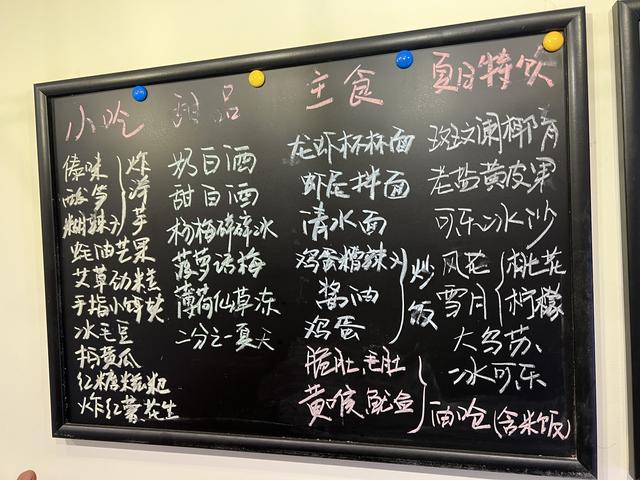 小吃
傣味
酸笋
糊辣子
炸
洋
芋
蚝油芒果
艾草动糕
手指小酥肉
冰毛豆
拍黄瓜
红糖糍粑
炸红薯花生
甜品
奶白酒
甜白酒
杨梅碎碎冰
菠萝话梅
薄荷仙草冻
二分之一夏天
主食
龙虾杯杯面
虾尾拌面
清水面
鸡蛋糟辣子
酱油
鸡蛋
炒
饭
脆肚毛肚
黄喉鱿鱼
油呛(含米饭)
夏日特饮
斑斓椰青
老盐黄皮果
可乐冰沙
风花
雪月
桃花
柠檬
大乌苏
冰可乐